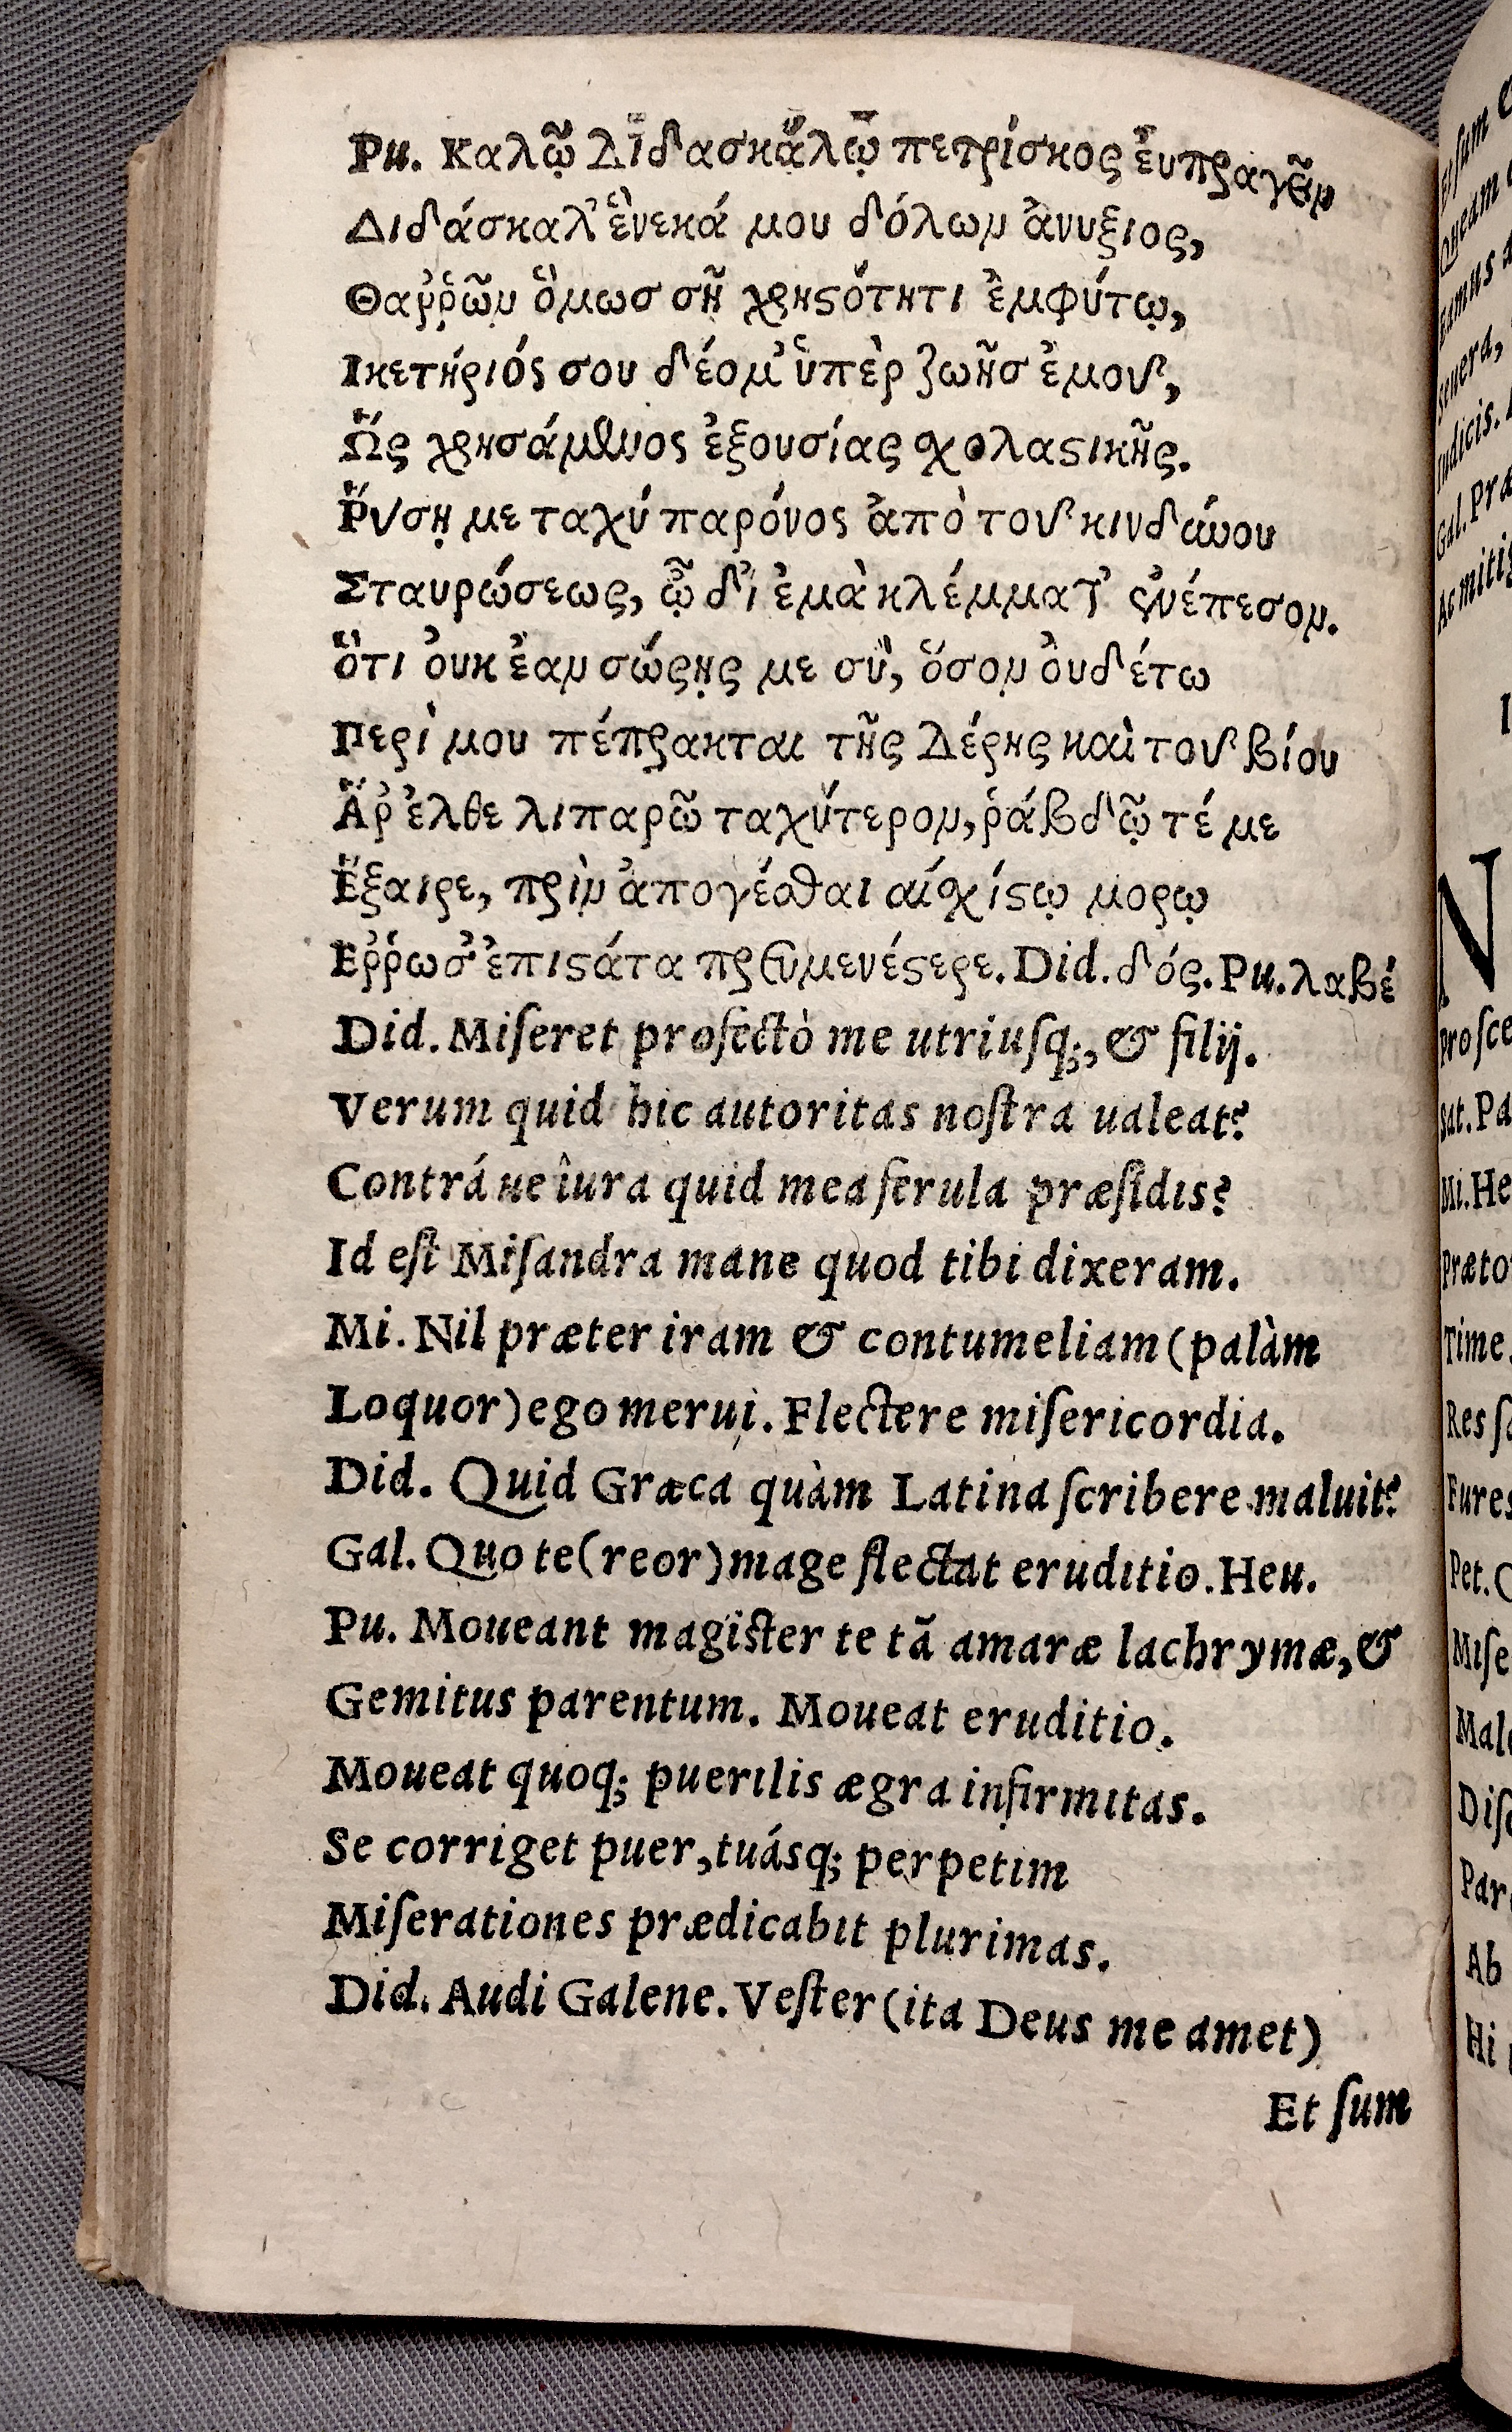 Pu. Καλῷ Διδασκάλῳ πετρίσκος ἐυπραγεῖν
Διδάσκαλ' ἕνεκά μου δόλων ἀνυξιος,
Θαῤῥῶν ὅμωσ σῇ χρηϛότητι ἐμφύτῳ,
Ικετήριός σου δέομ' ὑπὲρ ζωῆσ ἐμοῦ,
Ὥς χρησάμενος ἐξουσίας σχολαϛικῆς.
Ῥύσῃ με ταχύ παρόνος ἀπὸ τοῦ κινδύνου
Σταυρώσεως, ᾧ δι' ἐμὰ κλέμματ' συνέπεσον.
ὅτι ὀυκ ἐαν σώσῃς με σὺ, ὅσον ὀυδέτω
Περὶ μου πέπρακται τῆς Δέρης καὶ τοῦ βίου
Ἄρ' ἐλθε λιπαρῶ ταχύτερον, ῥάβδῳ τέ με
Ἔξαιρε, πρὶν ἀπογέσθαι αἰσχίϛῳ μορῳ
Εῤῥωσ' ἐπιϛάτα πρευμενέϛερε. Did. δός. Pu. λαβέ
Did. Miſeret profectò me utriuſq;, & filij.
Verum quid hic autoritas noſtra ualeat?
Contráue iura quid mea ferula præſidis?
Id eſt Miſandra mane quod tibi dixeram.
Mi. Nil præter iram & contumeliam (palàm
Loquor) ego merui. Flectere miſericordia.
Did. Quid Græca quàm Latina ſcribere maluit?
Gal. Quo te (reor) mage flectat eruditio. Heu.
Pu. Moueant magiſter te tã amaræ lachrymæ, &
Gemitus parentum. Moueat eruditio.
Moueat quoq; puerilis ægra infirmitas.
Se corriget puer, tuásq; perpetim
Miſerationes prædicabit plurimas.
Did. Audi Galene. Veſter (ita Deus me amet)
Et ſum